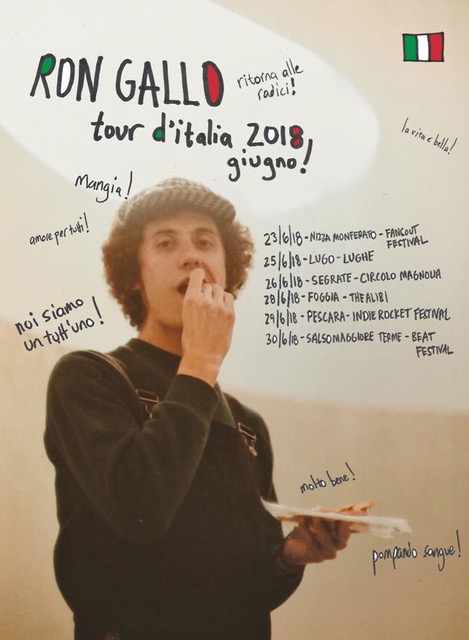 RON GALLO
ritorna alle
radici!
tour d'italia 2018,
giugno!
la vita e bella!
Mangia!
amore per tutti!
23/6/18 - NIZZA MONFERATO - FANSOUT
FESTIVAL
25/6/18 - LUGO - LUGHE
26/6/18 - SEGRATE - CIRCOLO MAGNOLIA
28/6/18 - FOGGIA - THE ALIBI
29/6/18 - PESCARA - INDIE ROCKET FESTIVAL
30/6/18 - SALSOMAGGIORE TERME - BEAT
FESTIVAL
noi siamo
un tutt'uno!
molto bene!
pompando sangue!